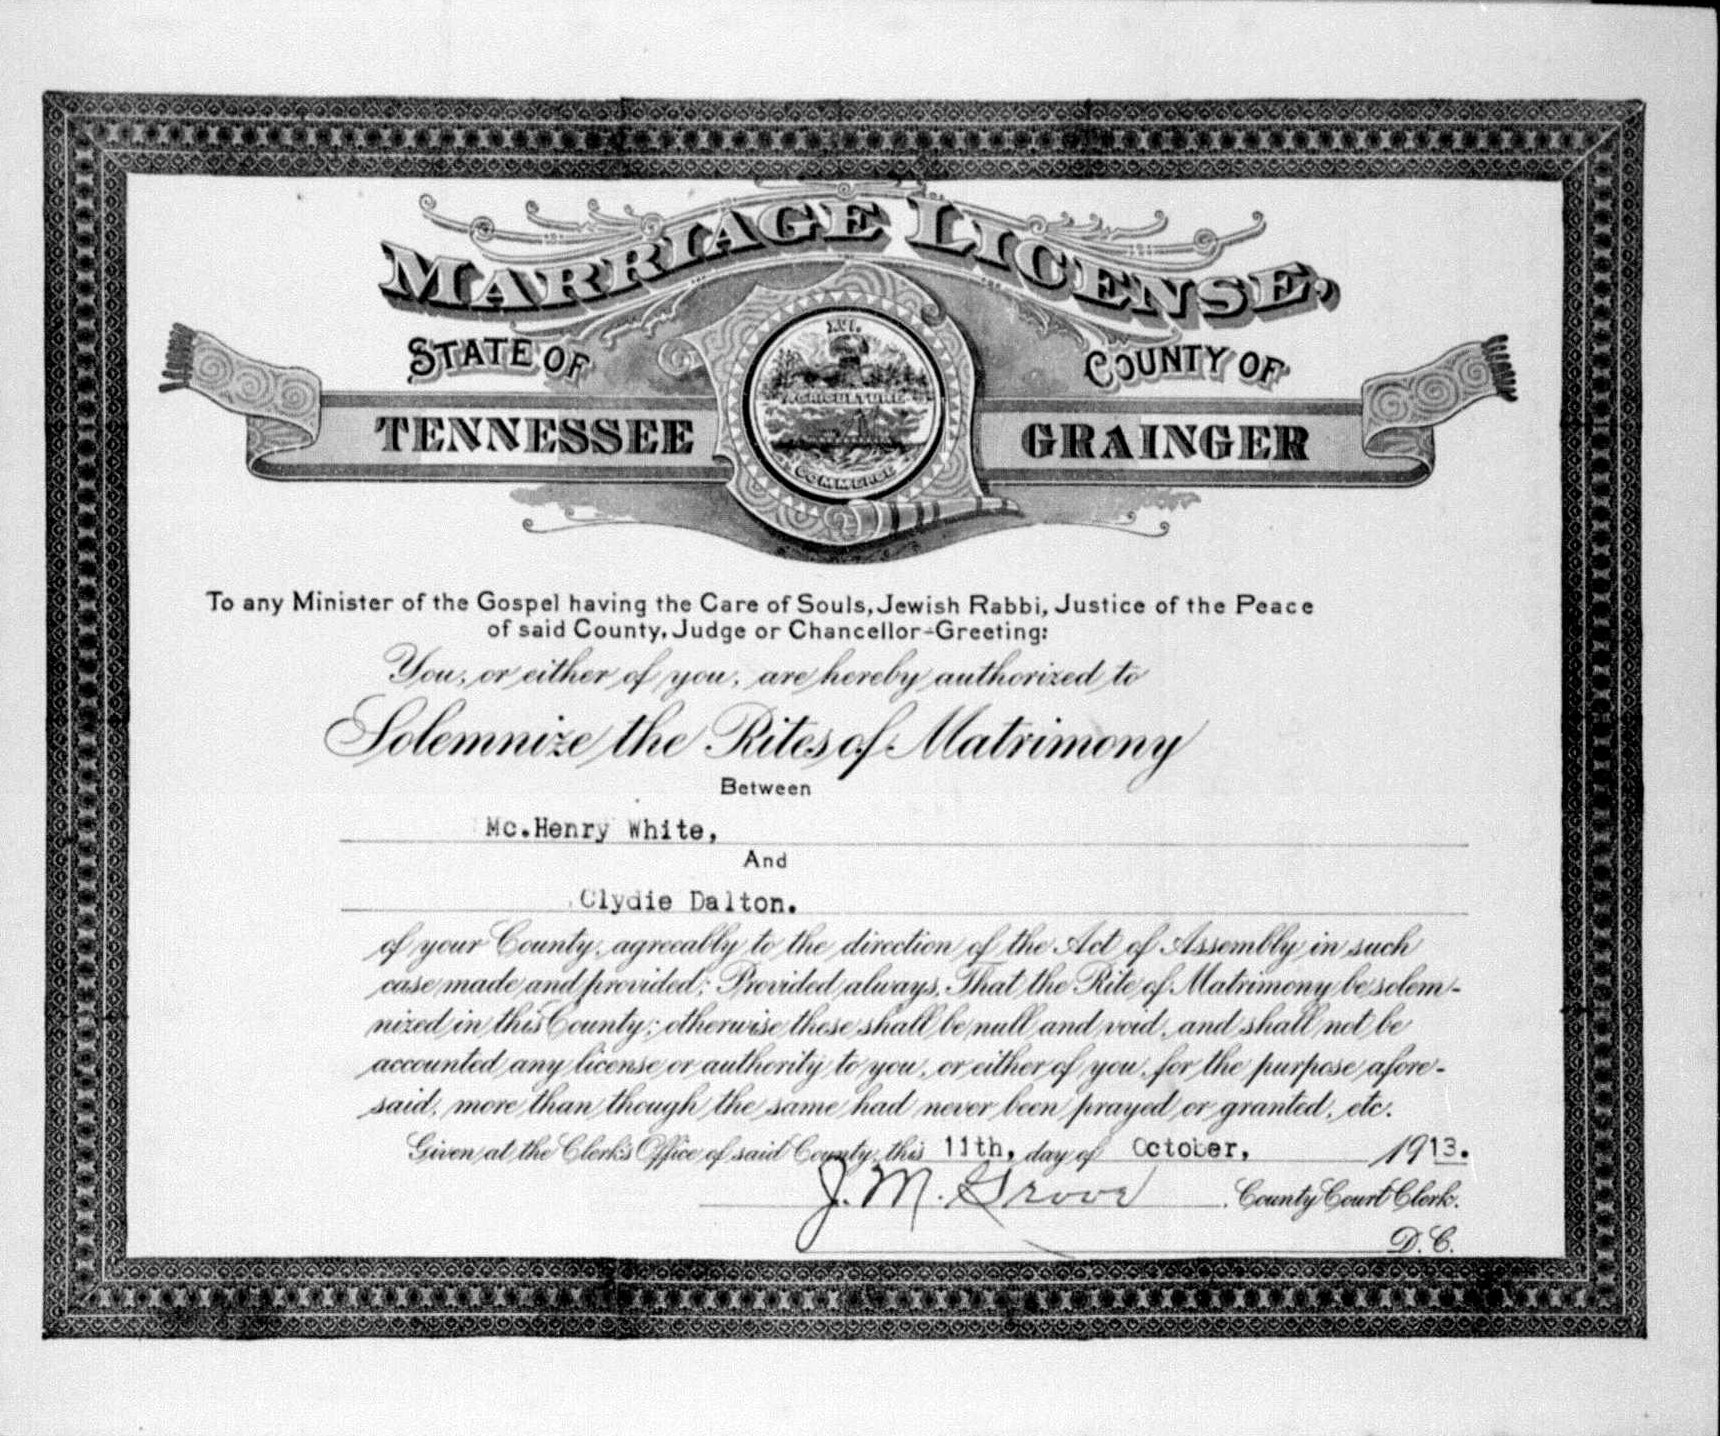 MARRIAGE LICENSE,
STATE OF
COUNTY OF
TENNESSEE
GRAINGER
XVI.
AGRICULTURE
COMMERCE
To any Minister of the Gospel having the Care of Souls, Jewish Rabbi, Justice of the Peace
of said County, Judge or Chancellor-Greeting:
You, or either of you, are hereby authorized to
Solemnize the Rites of Matrimony
Between
Mc.Henry White,
And
Clydie Dalton.
of your County, agreeably to the direction of the Act of Assembly in such
case made and provided; Provided always, That the Rite of Matrimony be solem-
nized in this County; otherwise these shall be null and void, and shall not be
accounted any license or authority to you, or either of you, for the purpose afore-
said, more than though the same had never been prayed or granted, etc.
Given at the Clerk's Office of said County, this 11th, day of October, 1913.
J. M. Grove County Court Clerk.
D. C.